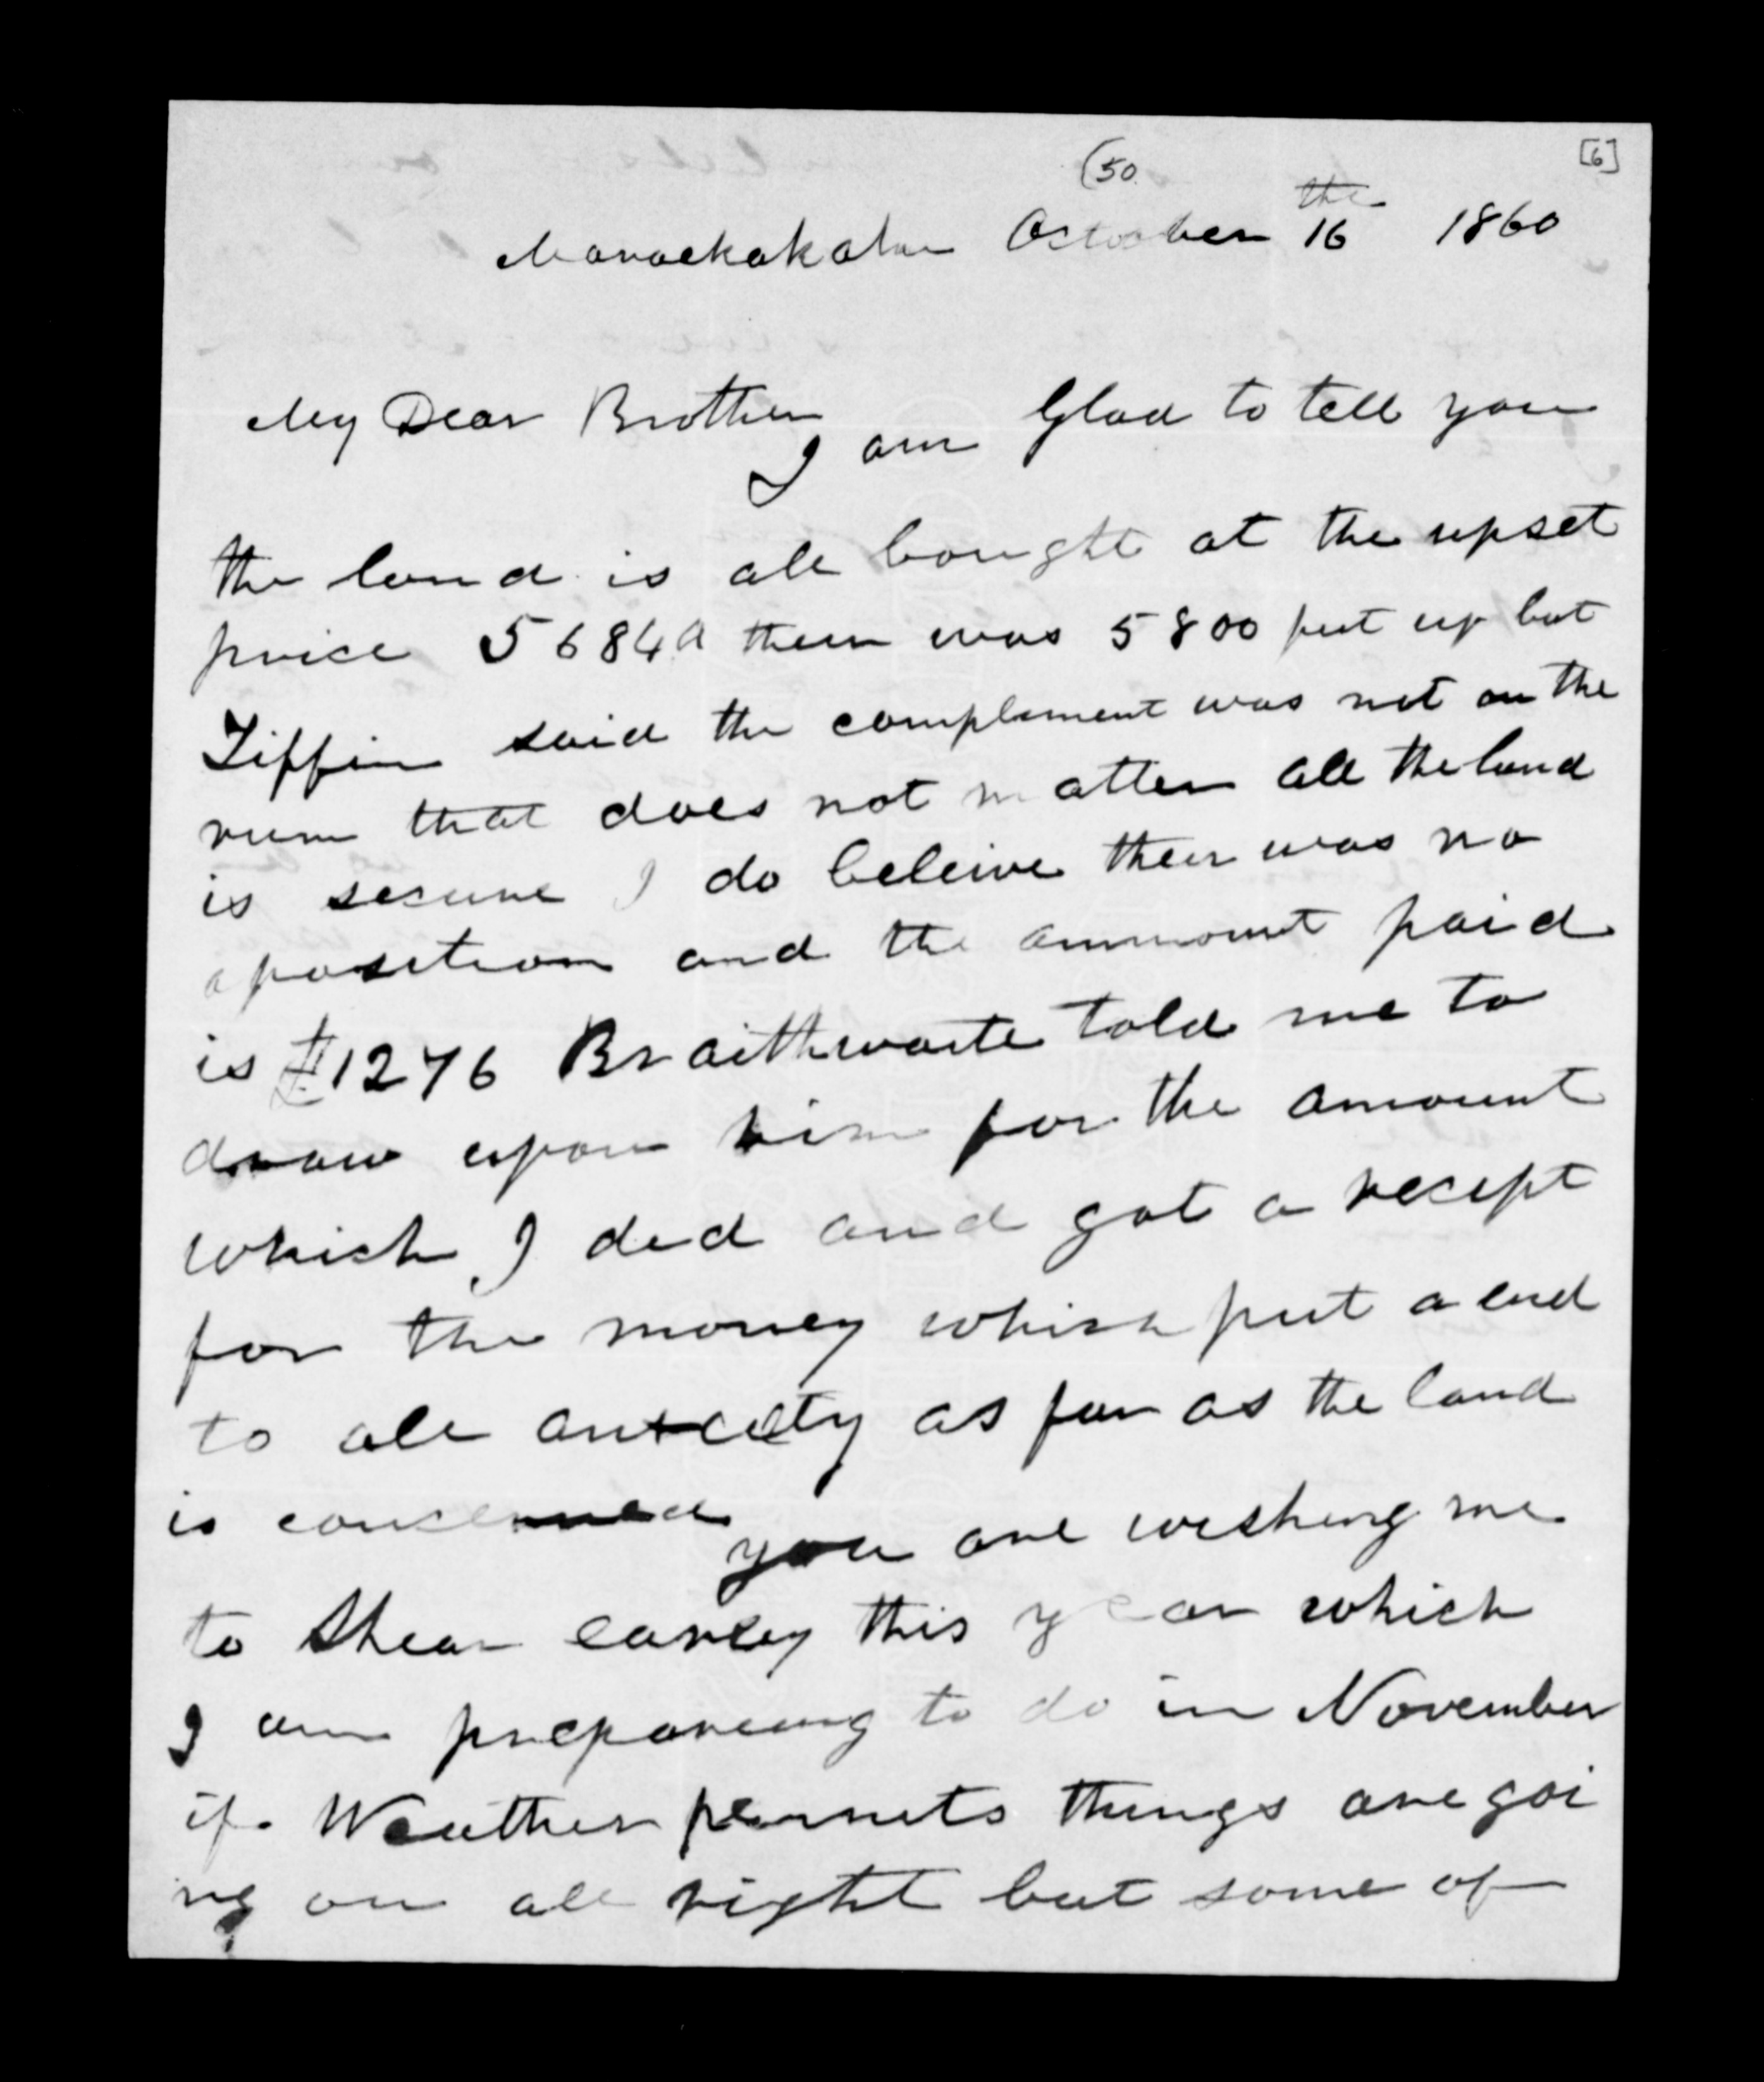 (50.
[6]
Maraekakaho October 16 the 1860
My Dear Brother
I am Glad to tell you
the land is all bought at the upset
price 5684 a ther was 5800 put up but
Tiffin said the complement was not on the
run that does not matter all the land
is secure I do beleive ther was no
oposition and the ammount paid
is £1276 Braithwaite told me to
draw upon him for the amount
which I did and got a recept
for the money which put a end
to all
as far as the land
is concerned you are wishing me
to Shear earley this year which
I am preparing to do in November
if Weather permits things are goi
ng on all right but some of